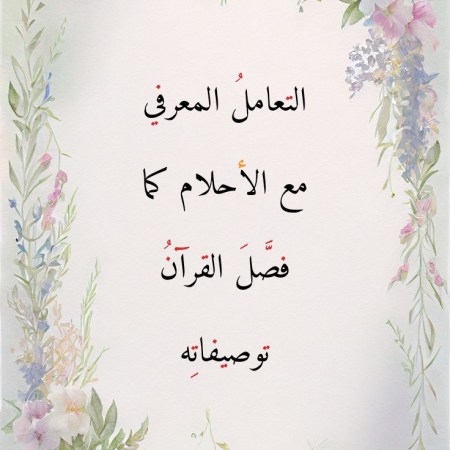 التعاملُ المعرفي
مع الأحلام كما
فصَّلَ القرآنُ
توصيفاتِه